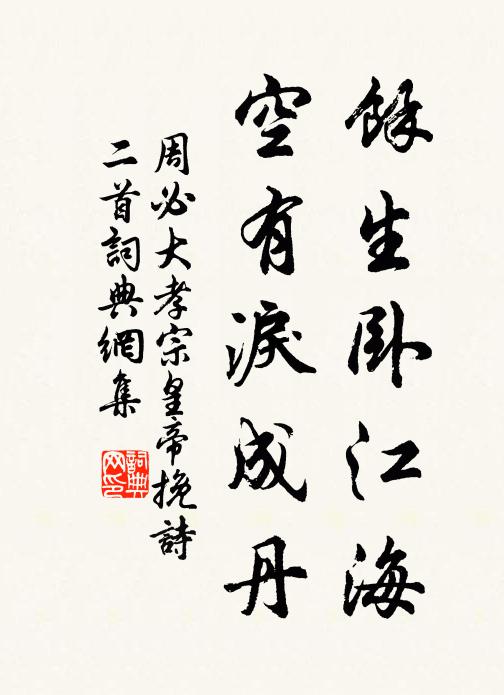 餘生卧江海
空有淚成丹
周必大孝宗皇帝挽詩
二首詞典網集
詞典
网印